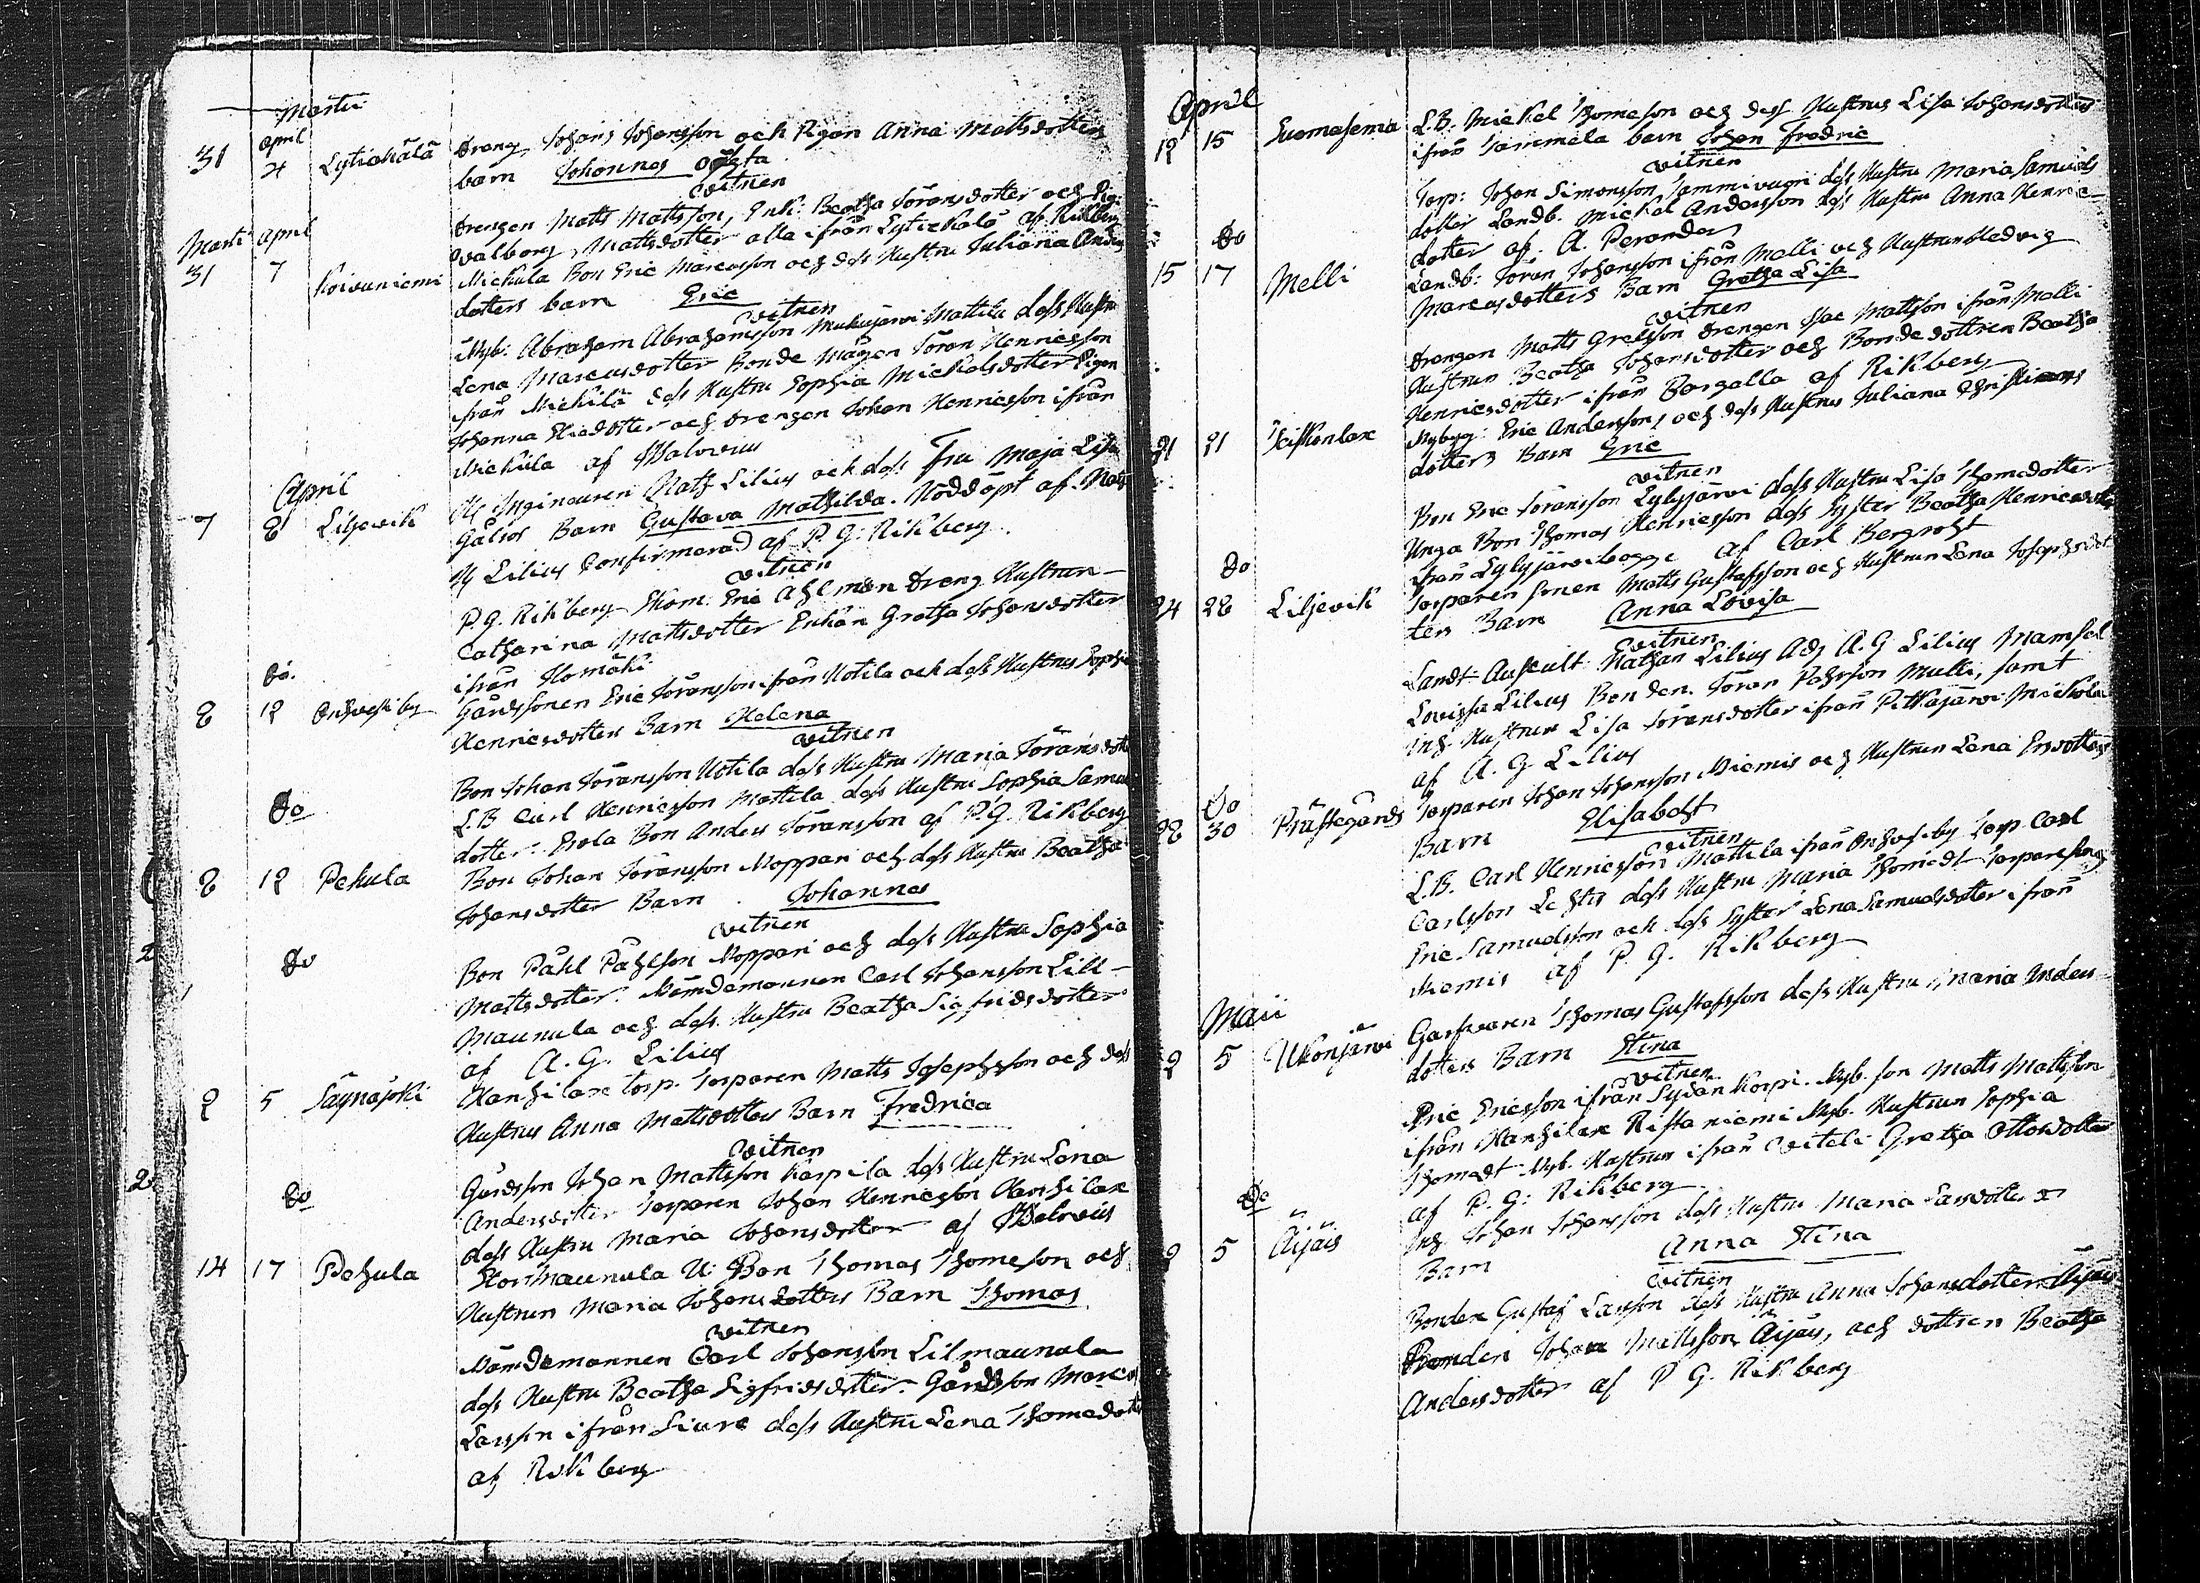 Martii
April
31 4 Lytickälä Dreng Johans Johansson och Pigan Anna Mattsdotters
barn Johannes oägta
vitnen
Drengen Matts Mattsson, Enk: Beatha Göransdotter och Pig:
Valborg Mattsdotter alla ifrån Lytickälä af Rikberg
Martii April
31 7 Koivuniemi Mickula Bon Eric Marcusson och dess Hustru Juliana Anders
dotters barn Eric
vitnen
Nyb: Abraham Abrahamsson Mattila dess Hustru
Lena Marcusdotter Bonde Mågen Göran Henricsson
från Mickilä dess Hustru Sophia Mickelsdotter Pigan
Johanna Eliedotter och Drengen Johan Henricsson ifrån
Mickula af
April
7 8 Liljevik H Ingineuren Natf Lilius och dess Fru Maja Lisa
Barn Gustava Mathilda. Nöddöpt af
H Lilius Confirmerad af P. G. Rikberg
vitnen
P. G. Rikberg Ekom: Eric Ahlmen Dreng Hustrun
Catharina Mattsdotter Enkan Gretha Johansdotter
ifrån Ilomäki
do.
8 12 Onkvesi by Gårdssonen Eric Göransson ifrån Uotila och dess Hustrus Sophia
Henricsdotters Barn Helena
vitnen
Bon Johan Göransson Uotila dess Hustru Maria Göransdotter
L.B Carl Henricsson Mattila dess Hustru Sophia Samuels
dotter. Bon Anders Göransson af P. G. Rikberg
do
8 12 Pekula Bon Johan Göransson Noppari och dess Hustru Beatha
Johansdotter Barn Johannes
vitnen
Bon Påhl Påhlson Noppari och dess Hustru Sophia
Mattsdotter. Nämdemannen Carl Johansson Lill-
Maunula och dess Hustru Beatha Sigfridsdotter
af A. G. Lilius
do
2 5 Säynäjoki Hanhilax Torp. Torparen Matts Josephsson och dess
Hustrus Anna Mattsdotters Barn Fredrica
vitnen
Gårdsson Johan Mattsson Karpila dess Hustru Lena
Andersdotter Torparen Johan Henricsson Hanhilax
dess Hustru Maria Johansdotter af
do
14 17 Pehula Stor Maunula U: Bon Thomas Thomeson och
Hustrun Maria Johansdotters Barn Thomas
vitnen
Nämdemannen Carl Johansson Lilmaunula
dess Hustru Beatha Sigfridsdotter. Gårdsson Marcus
Larsson ifrån Siure dess Hustru Lena Thomedotter
af Rikberg
April
12 15 Suomasema L.B. Mickel Thomeson och dess Hustrus Lisa Johansdotters
ifrån barn Johan Fredric
vitnen
Torp: Johan Simonsson Sammivuori dess Hustru Maria Samuels
dotter Landb. Mickel Andersson dess Hustru Anna Henrics-
dotter af A. Perander
do
15 17 Melli Landb: Göran Johansson ifrån Melli och Hustrun Hedvig
Marcusdotters Barn Gretha Lisa
vitnen
Drengen Matts Grelsson Drengen Isac Mattson ifrån Melli
Hustrun Beatha Johansdotter och Bondedottren Beatha
Henricsdotter ifrån Pargalla af Rikberg
21 21 Teiskonlax Nybyg: Eric Andersson och dess Hustrus Juliana Christians
dotters Barn Eric
vitnen
Bon Eric Göransson Lylyjärvi dess Hustru Lisa Thomedotter
Unga Bon Thomas Henricsson dess Syster Beatha Henricsdotter
ifrån Lylyjärvi af Carl Bergroth
do
24 28 Liljevik Torparen sonen Matts Gustafsson och Hustrun Lena Josephsdot
ters Barn Anna Lovisa
vitnen
Landt Auscult: Nathan Lilius Adj A. G Lilius Mamsel
Lovissa Lilius Bonden. Göran Påhrson Mulli, samt
Inh. Hustrun Lisa Göransdotter ifrån Pitkäjärvi Mickola
af A. G Lilius
do
28 30 Prästegårds Torparen Johan Johansson Niemis och Hustrun Lena Ersdotters
Barn Elisabeth
vitnen
L.B. Carl Henricsson Mattila ifrån Onkvesi by Torp. Carl
Carlsson dess Hustru Maria Thomedt Torpareson
Eric Samuelsson och dess Syster Lena Samuelsdotter ifrån
Niemis af P. G. Rikberg
Maii
2 5 Ukonjärvi Garfvaren Thomas Gustafsson dess Hustru Maria Anders-
dotters Barn Stina
vitnen
Eric Ericsson ifrån Sydän Korpi. Nyb. son Matts Mattsson
ifrån Hanhilax Ristaniemi Nyb. Hustrun Sophia
Thomedt Nyb. Hustrun ifrån Viteli Gretha Ottosdotter
af P. G: Rikberg
do
2 5 Äijäis Inh Johan Johansson dess Hustru Maria Larsdotters
Barn Anna Stina
vitnen
Bonden Gustaf Larsson dess Hustru Anna Johansdotter Äijäis
Bonden Johan Mattsson Äijäis, och dottren Beatha
Andersdotter af P G. Rikberg